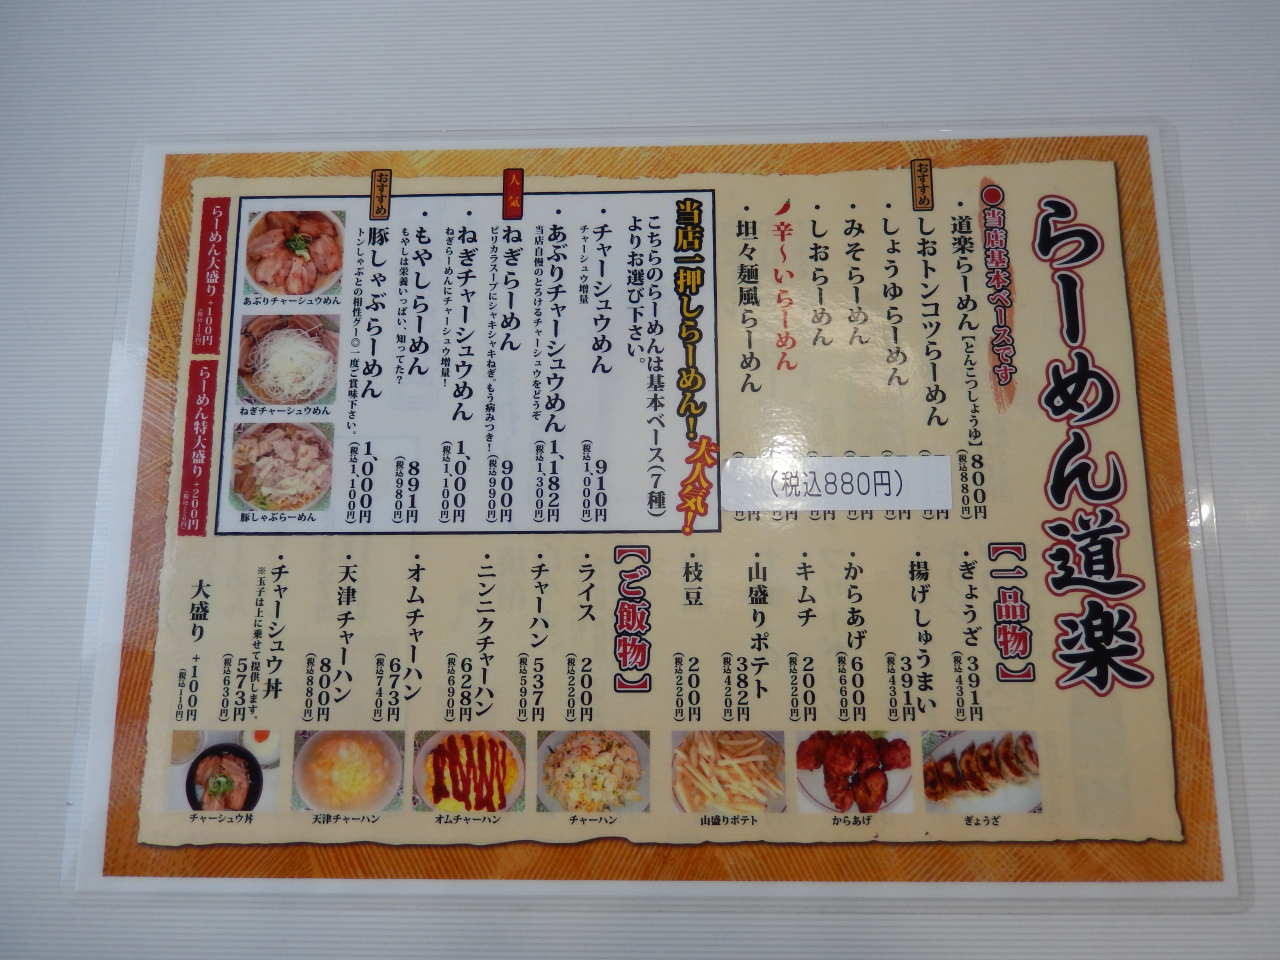 らーめん道楽
●当店基本ベースです
・道楽らーめん【とんこつしょうゆ】 800円
(税込880円)
おすすめ
しおトンコツらーめん
・しょうゆらーめん
・みそらーめん
・しおらーめん
辛〜いらーめん
・坦々麺風らーめん
(税込880円)
当店一押しらーめん!大人気!
こちらのらーめんは基本ベース(7種)
よりお選び下さい。
・チャーシュウめん 910円
チャーシュウ増量 (税込1,000円)
・あぶりチャーシュウめん 1,182円
当店自慢のとろけるチャーシュウをどうぞ (税込1,300円)
人気
ねぎらーめん 900円
ピリカラスープにシャキシャキねぎ。もう病みつき! (税込990円)
・ねぎチャーシュウめん 1,000円
ねぎらーめんにチャーシュウ増量! (税込1,100円)
・もやしらーめん 891円
もやしは栄養いっぱい、知ってた? (税込980円)
おすすめ
豚しゃぶらーめん 1,000円
トンしゃぶとの相性グー◎一度ご賞味下さい。 (税込1,100円)
あぶりチャーシュウめん
ねぎチャーシュウめん
豚しゃぶらーめん
らーめん大盛り +100円
(税込110円)
らーめん特大盛り +200円
(税込220円)
【一品物】
・ぎょうざ 391円
(税込430円)
・揚げしゅうまい 391円
(税込430円)
・からあげ 600円
(税込660円)
・キムチ 200円
(税込220円)
・山盛りポテト 382円
(税込420円)
・枝豆 200円
(税込220円)
【ご飯物】
・ライス 200円
(税込220円)
・チャーハン 537円
(税込590円)
・ニンニクチャーハン 628円
(税込690円)
・オムチャーハン 673円
(税込740円)
・天津チャーハン 800円
(税込880円)
・チャーシュウ丼 573円
※玉子は上に乗せて提供します。 (税込630円)
大盛り +100円
(税込110円)
チャーシュウ丼
天津チャーハン
オムチャーハン
チャーハン
山盛りポテト
からあげ
ぎょうざ